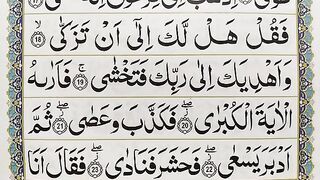 طُوًى ﴿١٦﴾ اِذْهَبْ اِلٰى فِرْعَوْنَ اِنَّهٗ طَغٰى ﴿١٧﴾
فَقُلْ هَلْ لَّكَ اِلٰٓى اَنْ تَزَكّٰى ﴿١٨﴾
وَاَهْدِيَكَ اِلٰى رَبِّكَ فَتَخْشٰى ﴿١٩﴾ فَاَرٰىهُ
الْاٰيَةَ الْكُبْرٰى ﴿٢٠﴾ فَكَذَّبَ وَعَصٰى ﴿٢١﴾ ثُمَّ
اَدْبَرَ يَسْعٰى ﴿٢٢﴾ فَحَشَرَ فَنَادٰى ﴿٢٣﴾ فَقَالَ اَنَا